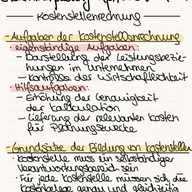 Kostenstellenrechnung
- Aufgaben der Kostenstellenrechnung
eigenständige Aufgaben:
- Darstellung der Leistungsbezie-
hungen im Unternehmen
- Kontrolle der Wirtschaftlichkeit
Hilfsaufgaben:
- Erhöhung der Genauigkeit
der Kalkulation
- Lieferung der relevanten Kosten
für Planungszwecke
- Grundsätze der Bildung von Kostenstellen
- Kostenstelle muss ein selbständiger
Verantwortungsbereich sein
- Für jede Kostenstelle müssen sich die
Kostenbelege genau und gleichzeitig